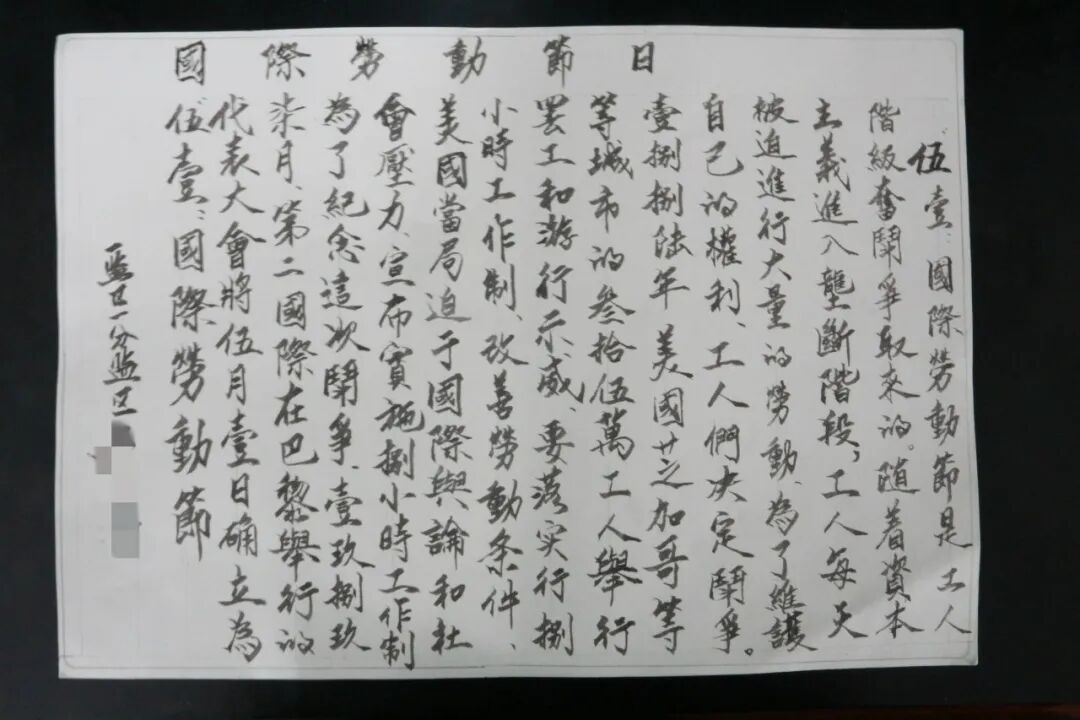 國際勞動節日
伍壹:國際勞動節是工人
階級奮鬪爭取來的。隨着資本
主義進入壟斷階段,工人每天
被迫進行大量的勞動、為了維護
自己的權利、工人們决定鬪爭。
壹捌捌陆年美國廿之加哥等
等城市的叄拾伍萬工人舉行
罢工和游行示威、要落实行捌
小時工作制、改善勞動条件、
美國當局迫于國際與論和社
會壓力、宣布實施捌小時工作制
為了紀念這次鬪爭、壹玖捌玖
柒月、第二國際在巴黎舉行的
代表大會將伍月壹日确立為
伍壹:國際勞動節
一监区一分监区